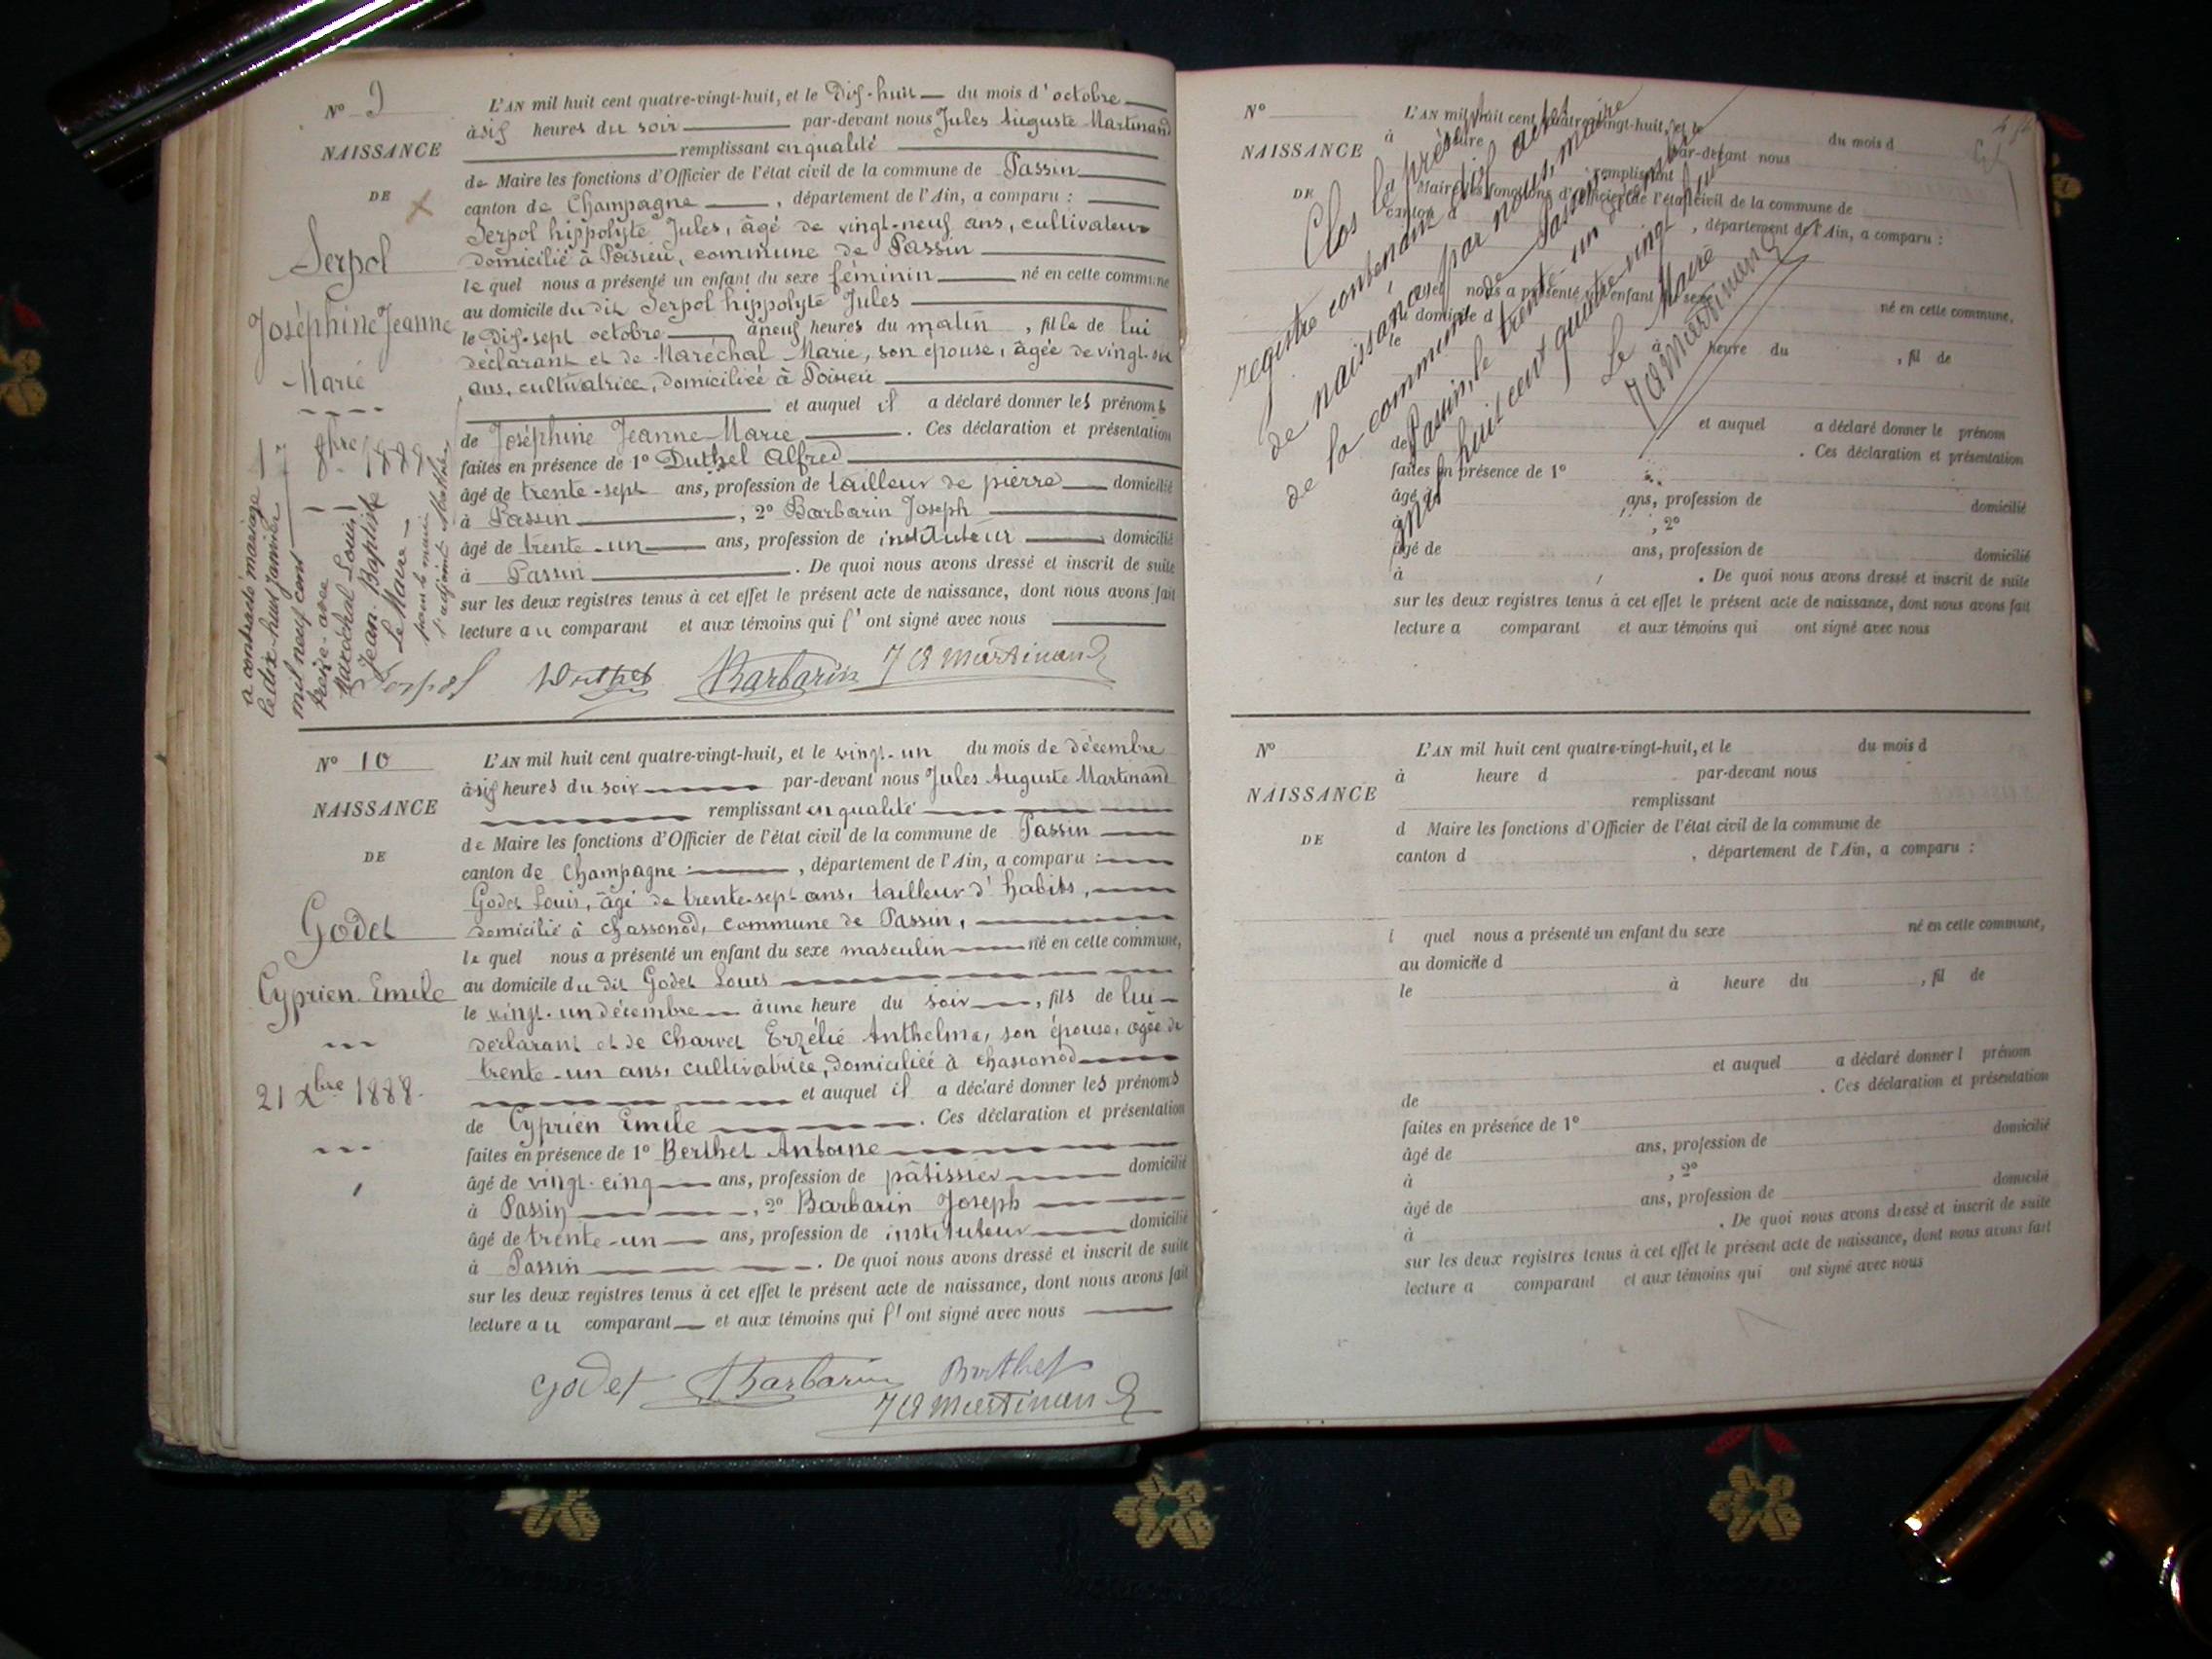 N° 9
NAISSANCE
DE
Serpol
Joséphine Jeanne
Marie
8bre 1888
a contracté mariage
le dix-huit janvier
mil neuf cent
treize avec
Maréchal Louis
Jean-Baptiste
Le Maire
L'AN mil huit cent quatre-vingt-huit, et le Dix-huit du mois d'octobre
à six heures du soir par-devant nous Jules Auguste Martinand
remplissant en qualité
de Maire les fonctions d'Officier de l'état civil de la commune de Passin
canton de Champagne , département de l'Ain, a comparu :
Serpol hippolyte Jules, âgé de vingt-neuf ans, cultivateur
domicilié à Poisieu, commune de Passin
le quel nous a présenté un enfant du sexe féminin né en cette commune
au domicile du dit Serpol hippolyte Jules
le Dix-sept octobre à neuf heures du matin , fille de lui
déclarant et de Maréchal Marie, son épouse, âgée de vingt-six
ans, cultivatrice, domiciliée à Poisieu
et auquel il a déclaré donner les prénoms
de Joséphine Jeanne Marie . Ces déclaration et présentation
faites en présence de 1° Duthel Alfred
âgé de trente-sept ans, profession de tailleur de pierre domicilié
à Passin , 2° Barbarin Joseph
âgé de trente-un ans, profession de instituteur domicilié
à Passin . De quoi nous avons dressé et inscrit de suite
sur les deux registres tenus à cet effet le présent acte de naissance, dont nous avons fait
lecture au comparant et aux témoins qui l'ont signé avec nous
Serpol Duthel Barbarin JA Martinand
N° 10
NAISSANCE
DE
Godet
Cyprien Emile
21 Xbre 1888.
L'AN mil huit cent quatre-vingt-huit, et le vingt-un du mois de décembre
à six heures du soir par-devant nous Jules Auguste Martinand
remplissant en qualité
de Maire les fonctions d'Officier de l'état civil de la commune de Passin
canton de Champagne , département de l'Ain, a comparu :
Godet Louis, âgé de trente-sept ans, tailleur d'habits,
domicilié à chassonod, commune de Passin,
le quel nous a présenté un enfant du sexe masculin né en cette commune,
au domicile du dit Godet Louis
le vingt-un décembre à une heure du soir , fils de lui
déclarant et de Charvet Erzélie Anthelma, son épouse, agée de
trente-un ans, cultivatrice, domiciliée à chassonod
et auquel il a déclaré donner les prénoms
de Cyprien Emile . Ces déclaration et présentation
faites en présence de 1° Berthet Antoine
âgé de vingt-cinq ans, profession de pâtissier domicilié
à Passin , 2° Barbarin Joseph
âgé de trente-un ans, profession de instituteur domicilié
à Passin . De quoi nous avons dressé et inscrit de suite
sur les deux registres tenus à cet effet le présent acte de naissance, dont nous avons fait
lecture au comparant et aux témoins qui l'ont signé avec nous
Godet Barbarin Berthet
JA Martinand
N°
NAISSANCE
DE
L'AN mil huit cent quatre-vingt-huit, et le du mois d
à heure par-devant nous
remplissant
d Maire les fonctions d'Officier de l'état civil de la commune de
canton d , département de l'Ain, a comparu :
l quel nous a présenté un enfant du sexe né en cette commune,
au domicile d
le à heure du , fil de
et auquel a déclaré donner le prénom
de . Ces déclaration et présentation
faites en présence de 1°
âgé de ans, profession de domicilié
à , 2°
âgé de ans, profession de domicilié
à . De quoi nous avons dressé et inscrit de suite
sur les deux registres tenus à cet effet le présent acte de naissance, dont nous avons fait
lecture a comparant et aux témoins qui ont signé avec nous
Clos le présent
registre contenant dix actes
de naissances par nous, maire
de la commune de Passin
Passin, le trente-un décembre
huit cent quatre-vingt huit
Le Maire
JA Martinand
N°
NAISSANCE
DE
L'AN mil huit cent quatre-vingt-huit, et le du mois d
à heure d par-devant nous
remplissant
d Maire les fonctions d'Officier de l'état civil de la commune de
canton d , département de l'Ain, a comparu :
l quel nous a présenté un enfant du sexe né en cette commune,
au domicile d
le à heure du , fil de
et auquel a déclaré donner l prénom
de . Ces déclaration et présentation
faites en présence de 1°
âgé de ans, profession de domicilié
à , 2°
âgé de ans, profession de domicilié
à . De quoi nous avons dressé et inscrit de suite
sur les deux registres tenus à cet effet le présent acte de naissance, dont nous avons fait
lecture a comparant et aux témoins qui ont signé avec nous